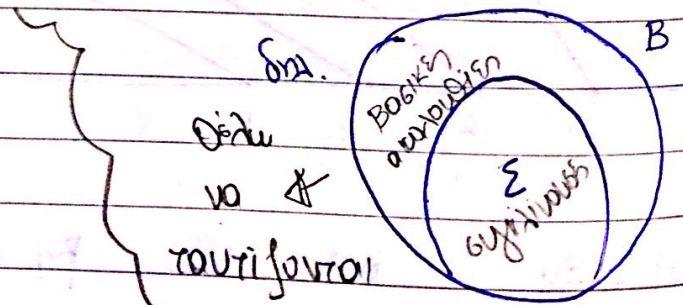 δηλ.
Θέλω
να
ταυτίζονται
Β
Βασικές
ακολουθίες
Σ
συγκλίνουσες